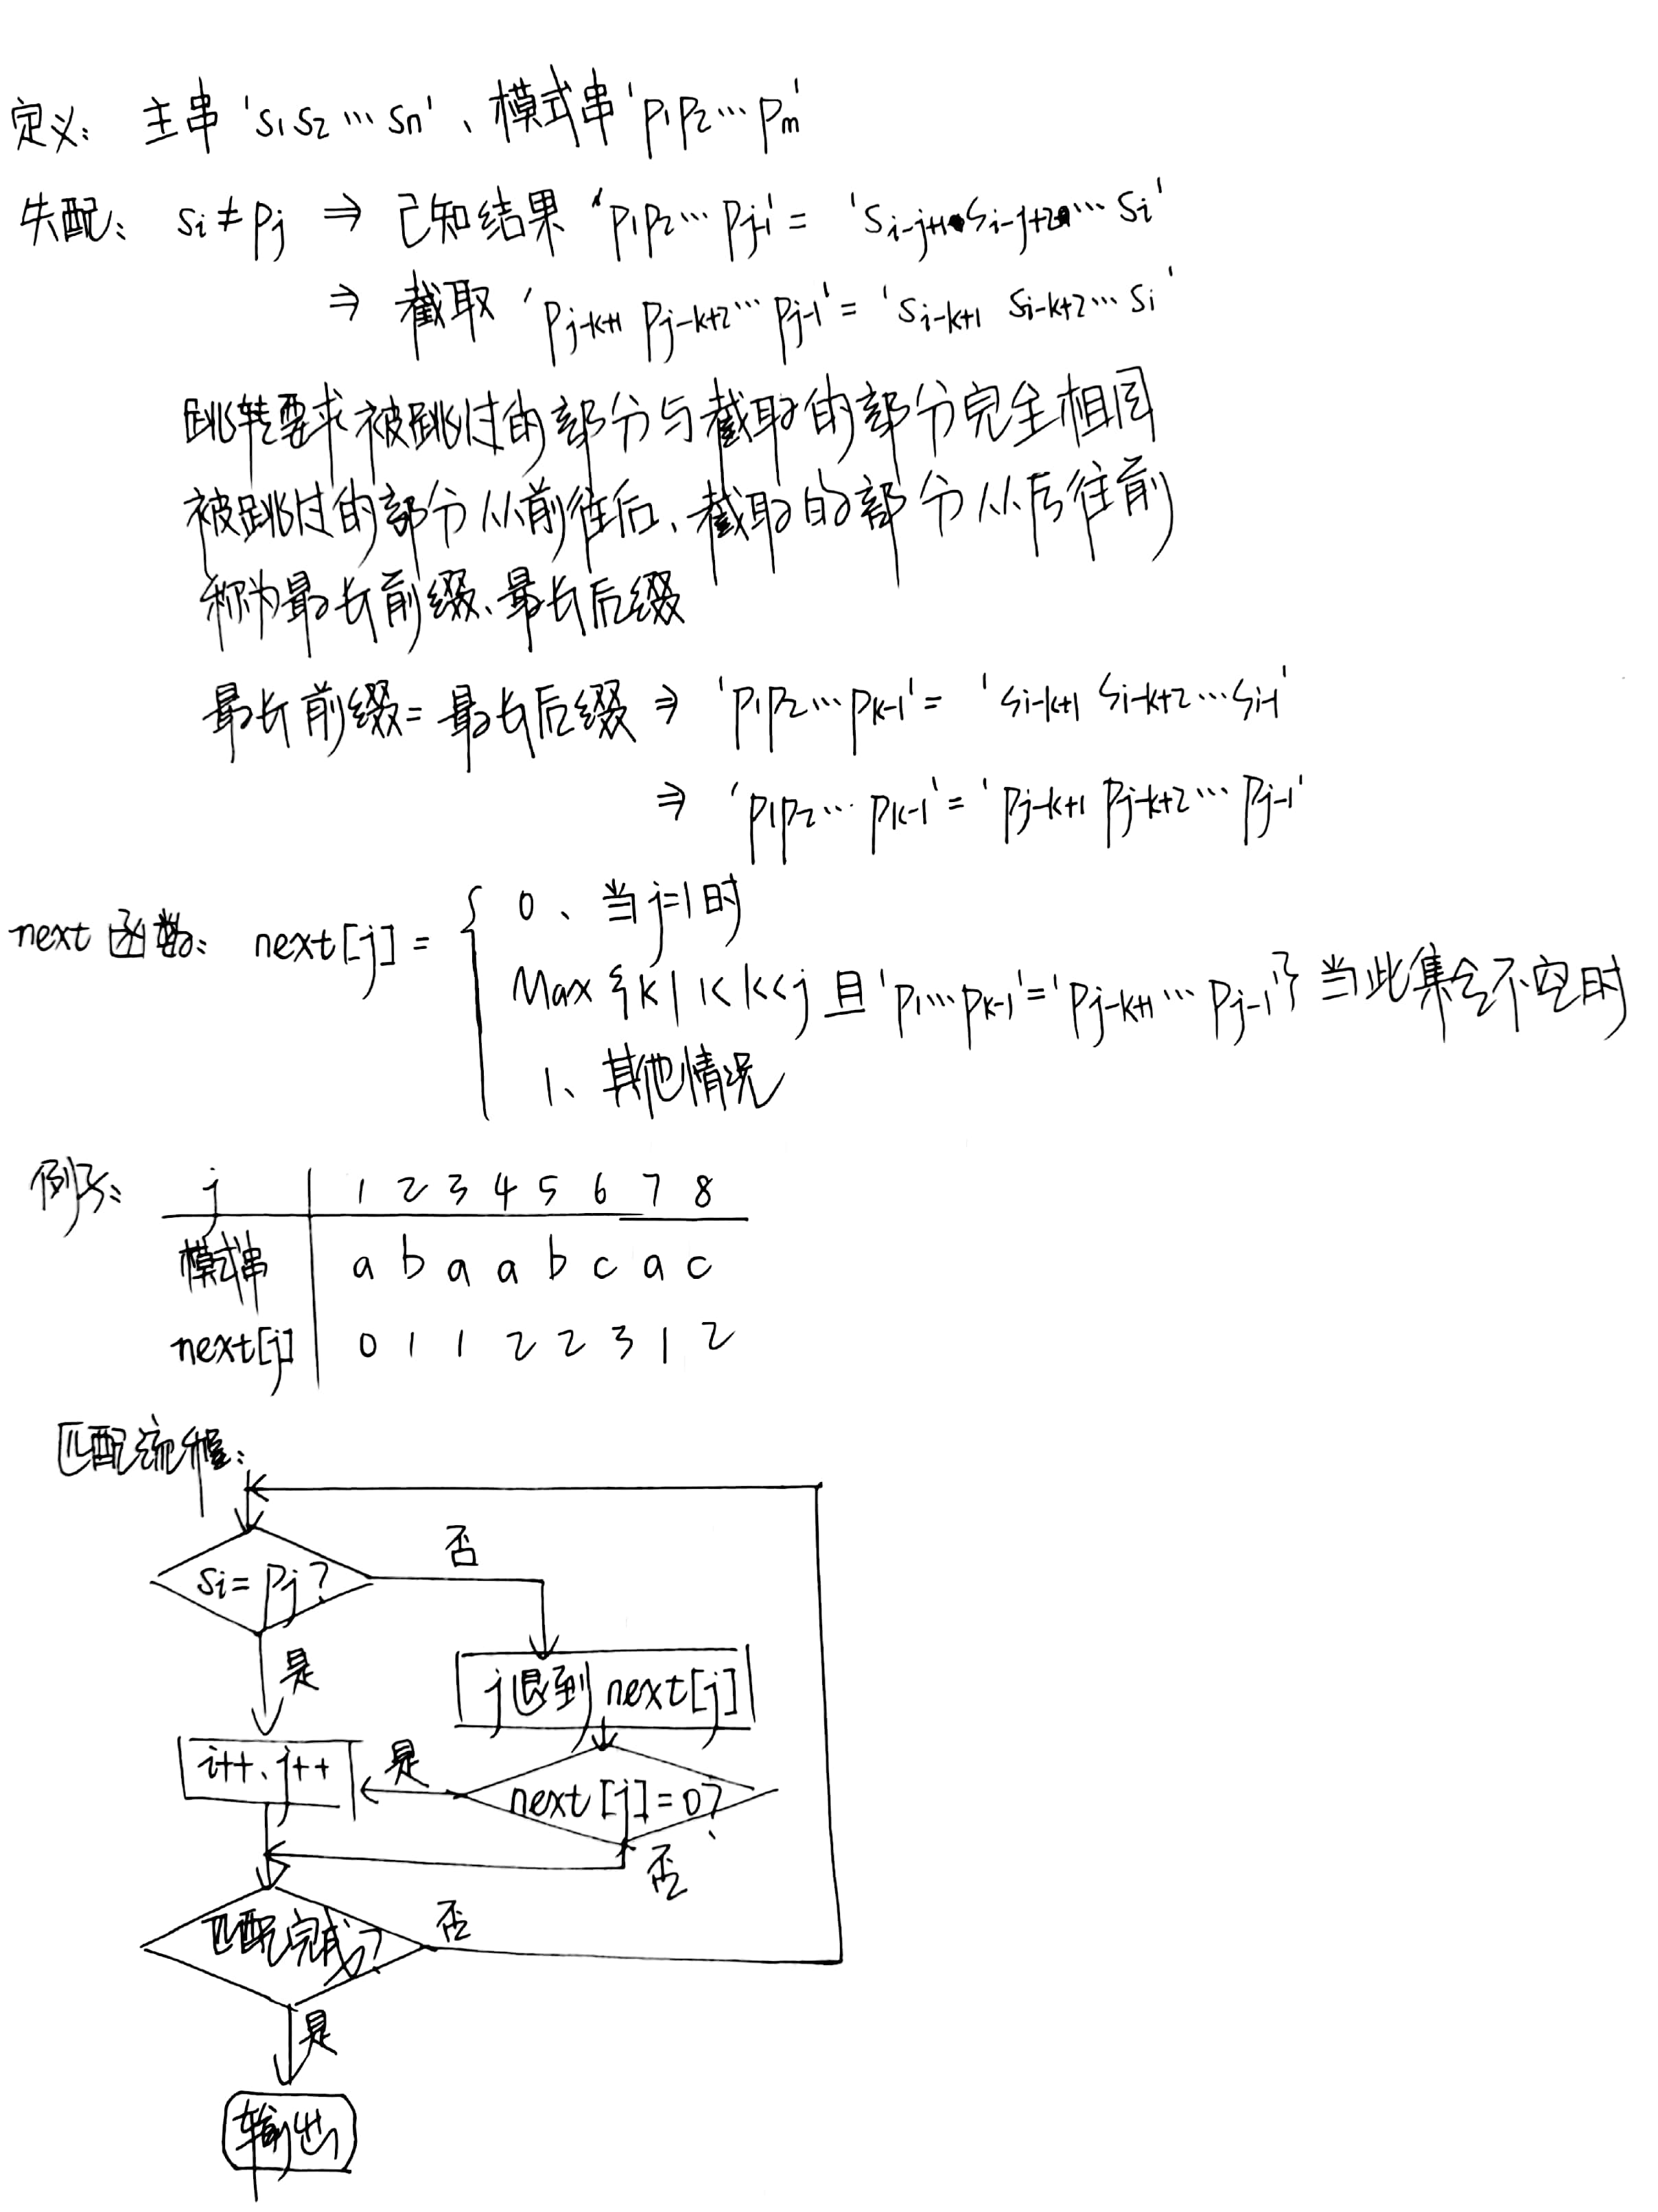 定义: 主串 's₁s₂…sn'、模式串 'p₁p₂…pm'
失配: si≠pj ⇒ 已知结果 'p₁p₂…pj-1' = 'si-j+1 si-j+2…si'
⇒ 截取 'pj-k+1 pj-k+2…pj-1' = 'si-k+1 si-k+2…si'
跳转要求被跳过的部分与截取的部分完全相同
被跳过的部分从前往后、截取的部分从后往前
称为最长前缀、最长后缀
最长前缀=最长后缀 ⇒ 'p₁p₂…pk-1' = 'si-k+1 si-k+2…si-1'
⇒ 'p₁p₂…pk-1' = 'pj-k+1 pj-k+2…pj-1'
next函数: next[j] = {
0、当j=1时
Max{k|1<k<j 且'p₁…pk-1'='pj-k+1…pj-1'} 当此集合不空时
1、其他情况
例子: j 1 2 3 4 5 6 7 8
模式串 a b a a b c a c
next[j] 0 1 1 2 2 3 1 2
匹配流程:
si=pj?
否
是
j退到next[j]
i++、j++
是
next[j]=0?
否
匹配完成?
否
是
输出